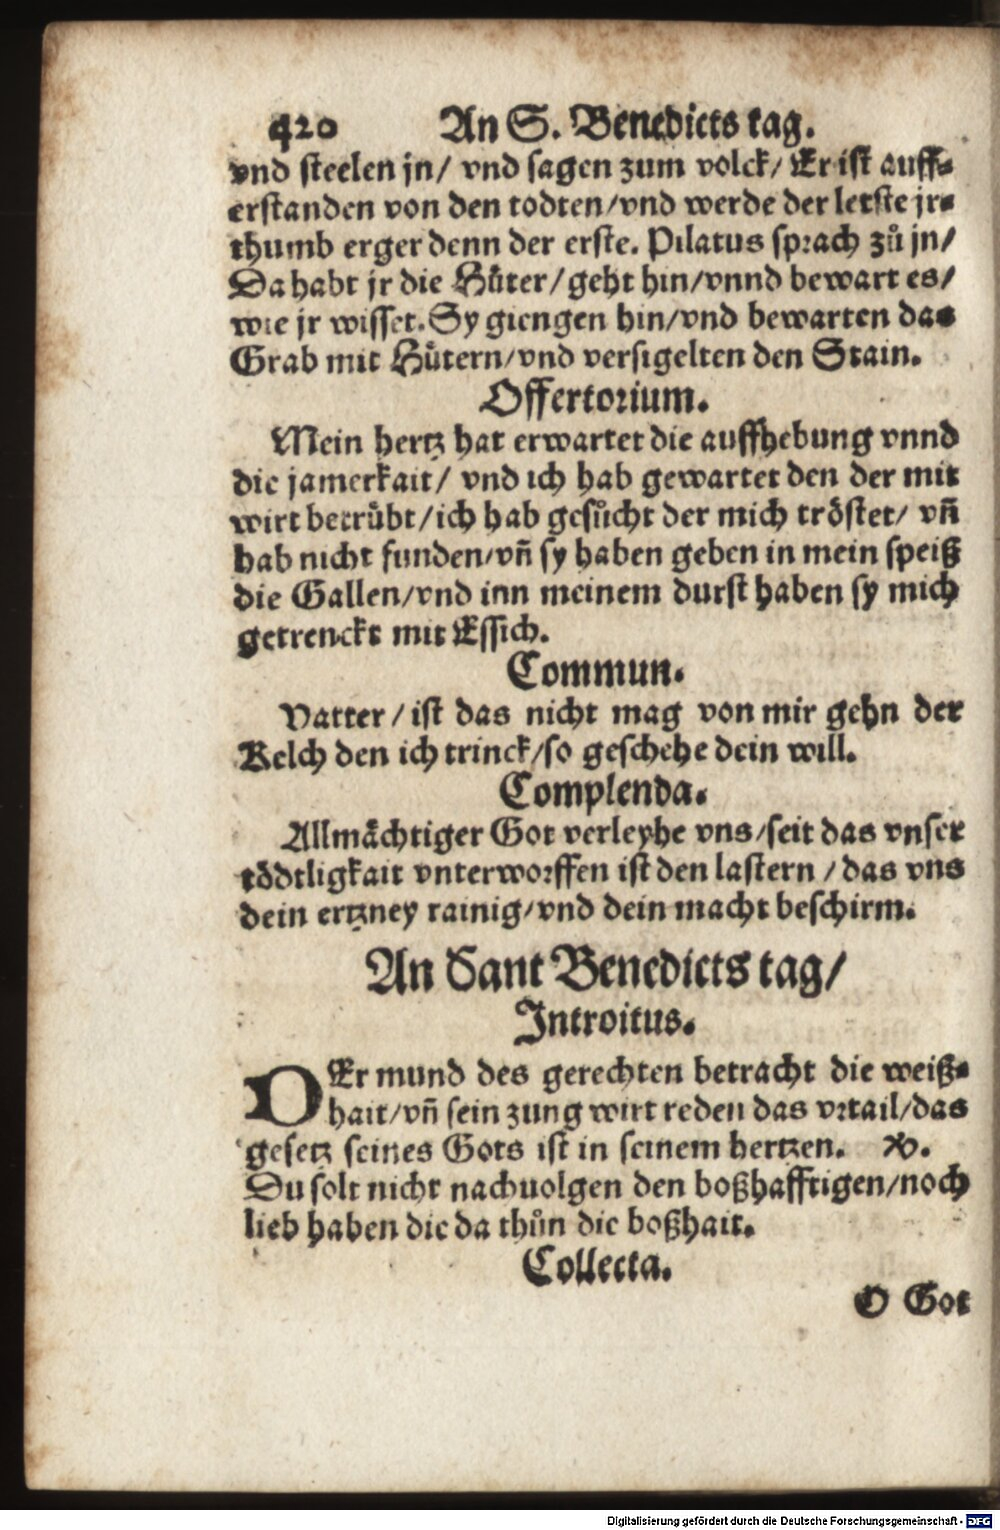 420 An S. Benedicts tag.
vnd steelen jn/ vnd sagen zum volck/ Er ist auff⸗
erstanden von den todten/vnd werde der letste jr⸗
thumb erger denn der erste. Pilatus sprach zů jn/
Da habt jr die Hůter/geht hin/vnnd bewart es/
wie jr wisset. Sy giengen hin/vnd bewarten das
Grab mit Hůtern/vnd versigelten den Stain.
Offertorium.
Mein hertz hat erwartet die auffhebung vnnd
die jamerkait/ vnd ich hab gewartet den der mit
wirt betrůbt/ich hab gesůcht der mich tröstet/ vñ
hab nicht funden/vñ sy haben geben in mein speiß
die Gallen/vnd inn meinem durst haben sy mich
getrenckt mit Essich.
Commun.
Vatter/ist das nicht mag von mir gehn der
Kelch den ich trinck/so geschehe dein will.
Complenda.
Allmächtiger Got verleyhe vns/seit das vnser
tödtligkait vnterworffen ist den lastern/das vns
dein ertzney rainig/vnd dein macht beschirm.
An Sant Benedicts tag/
Introitus.
DEr mund des gerechten betracht die weiß⸗
hait/vñ sein zung wirt reden das vrtail/das
gesetz seines Gots ist in seinem hertzen. ℣.
Du solt nicht nachuolgen den boßhafftigen/noch
lieb haben die da thůn die boßhait.
Collecta.
O Got
Digitalisierung gefördert durch die Deutsche Forschungsgemeinschaft - DFG